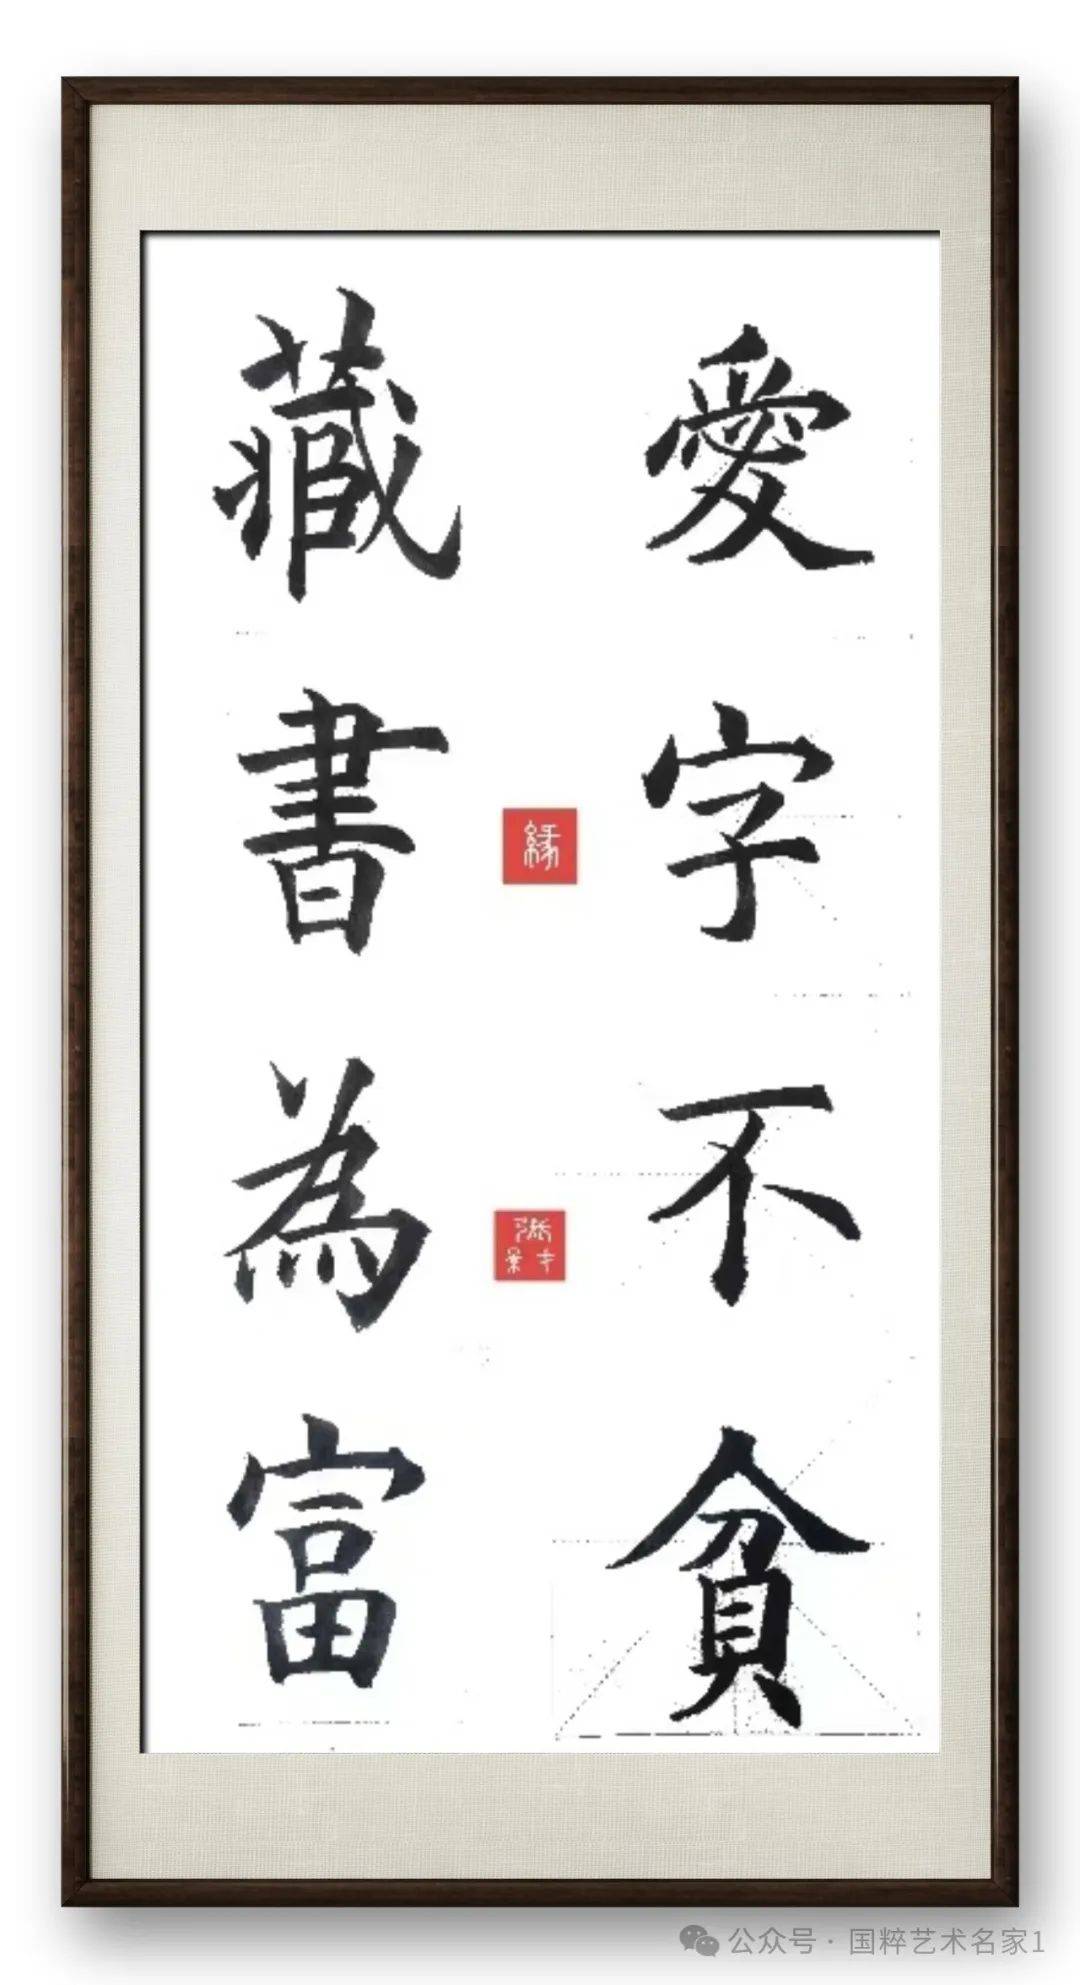 愛字不貧
藏書為富
緣
公众号 · 国粹艺术名家1